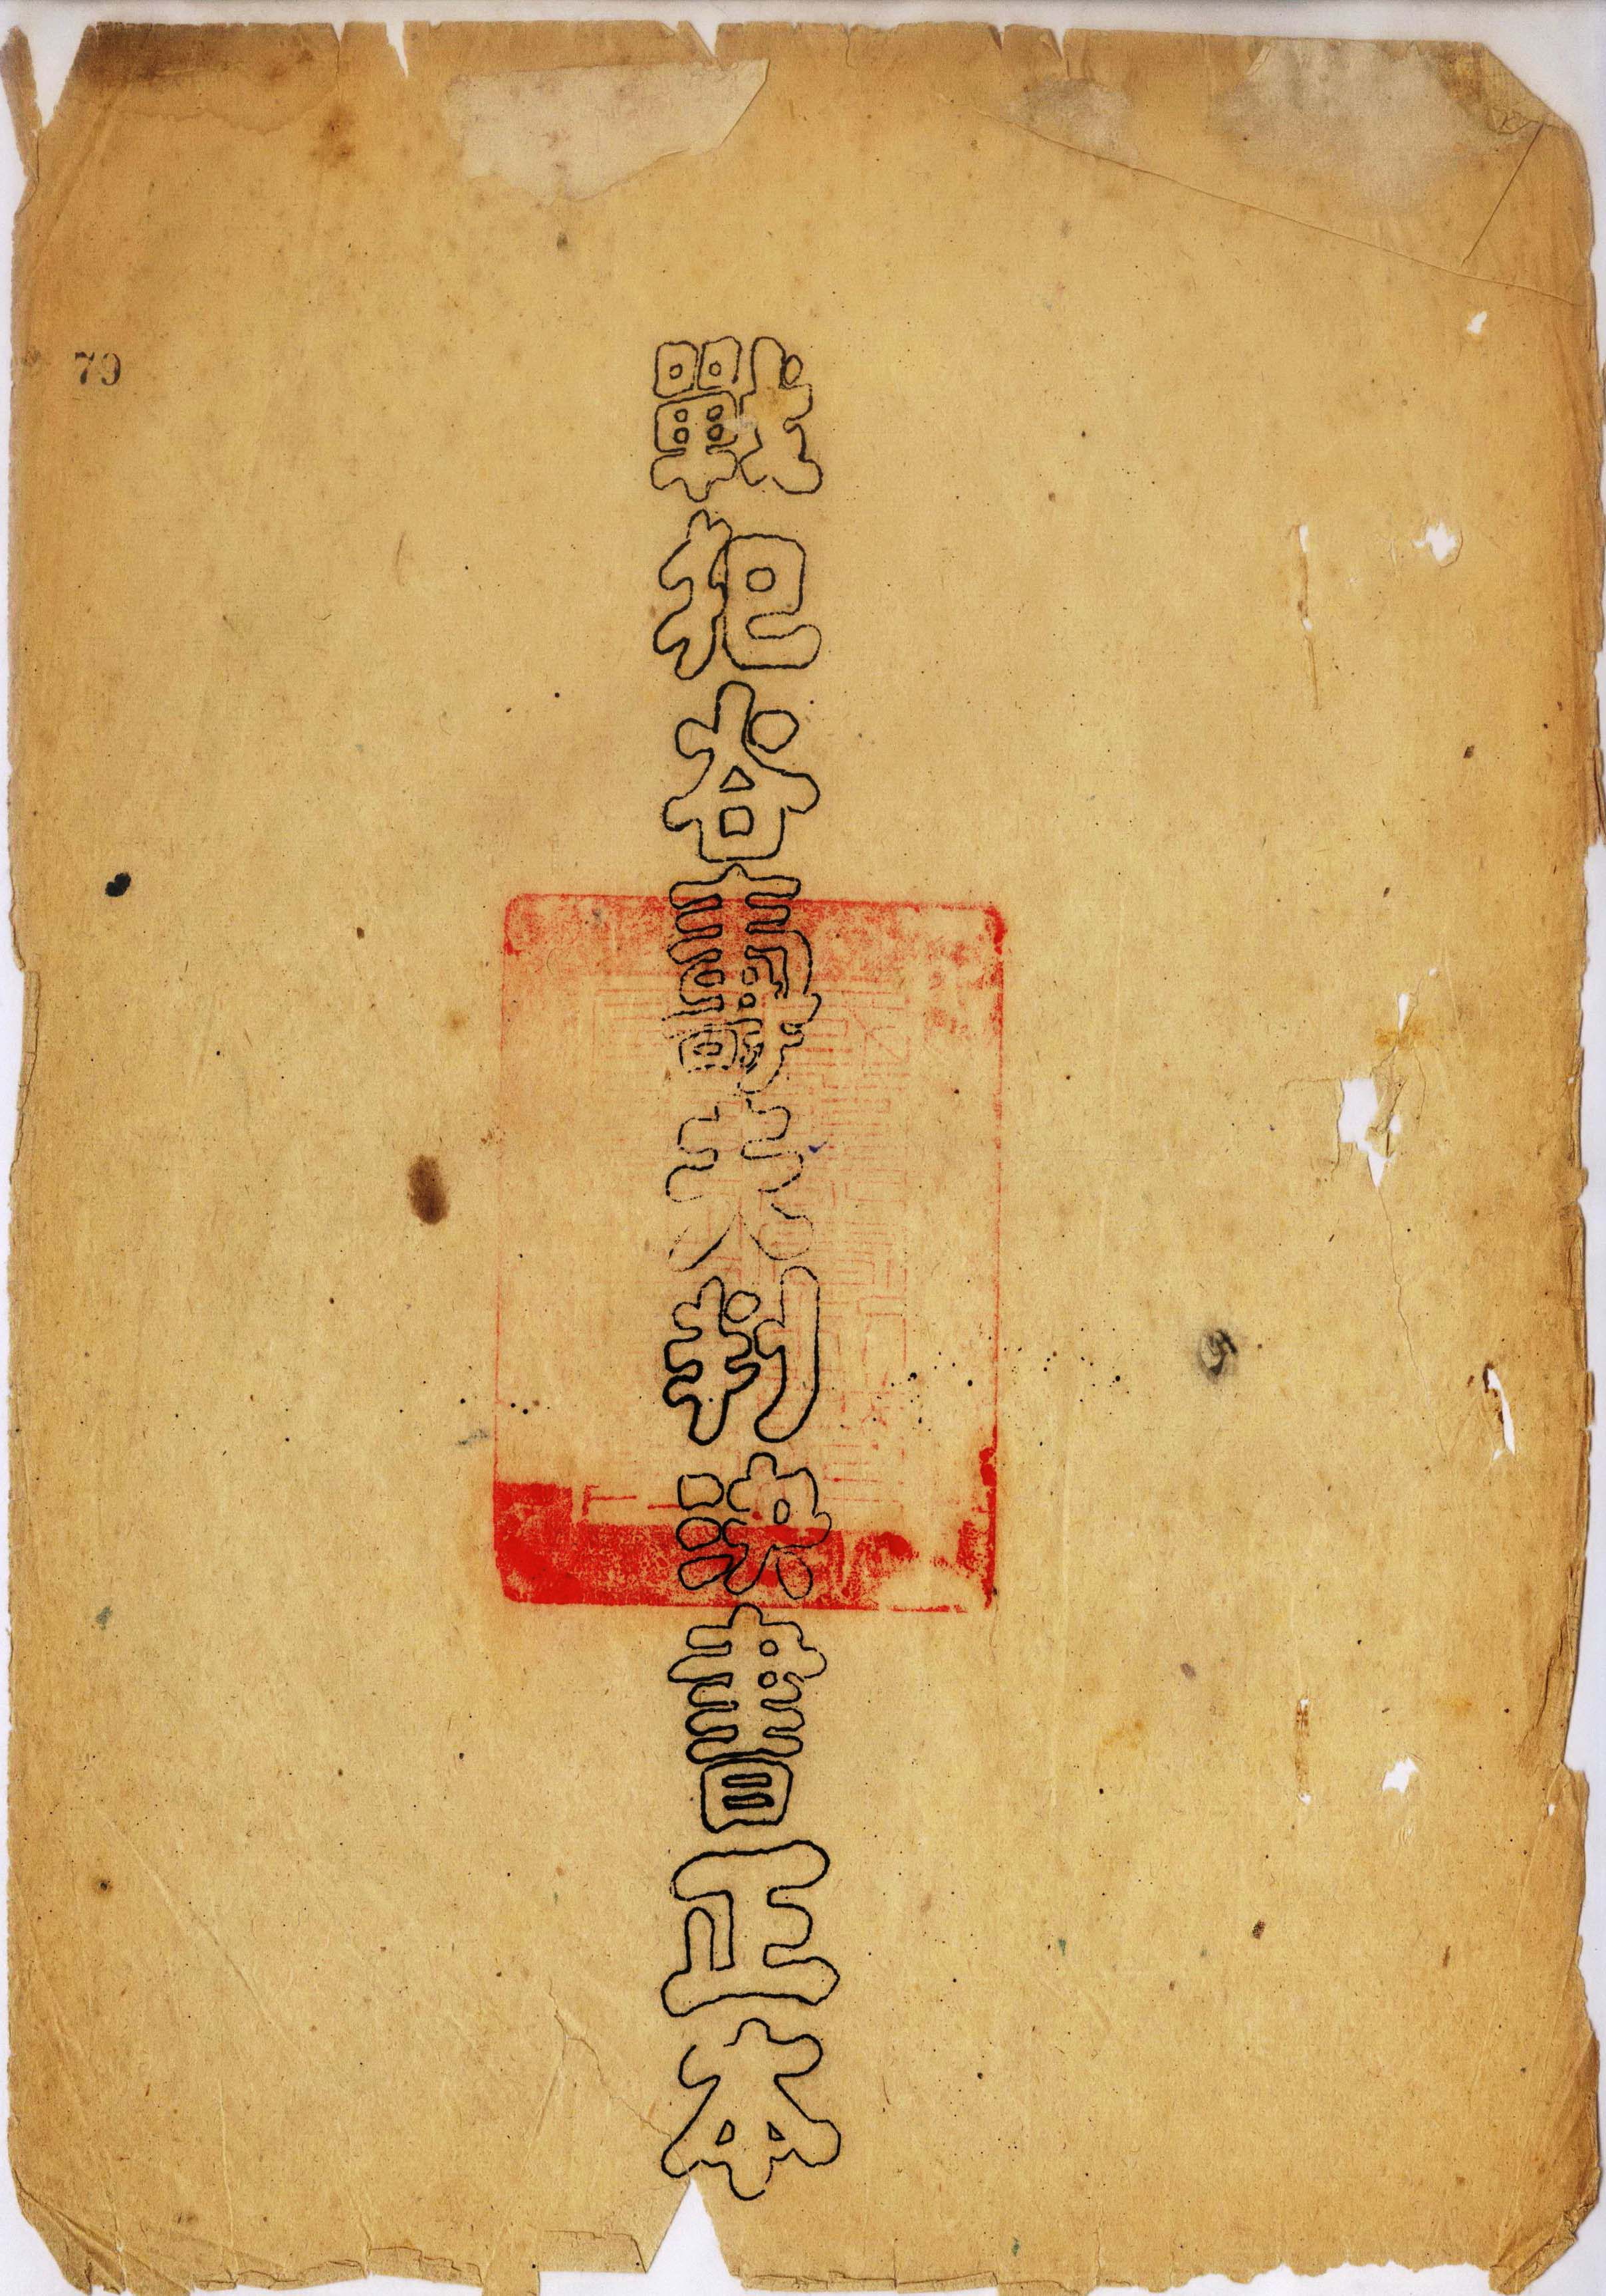 79
戰犯谷壽夫判決書正本